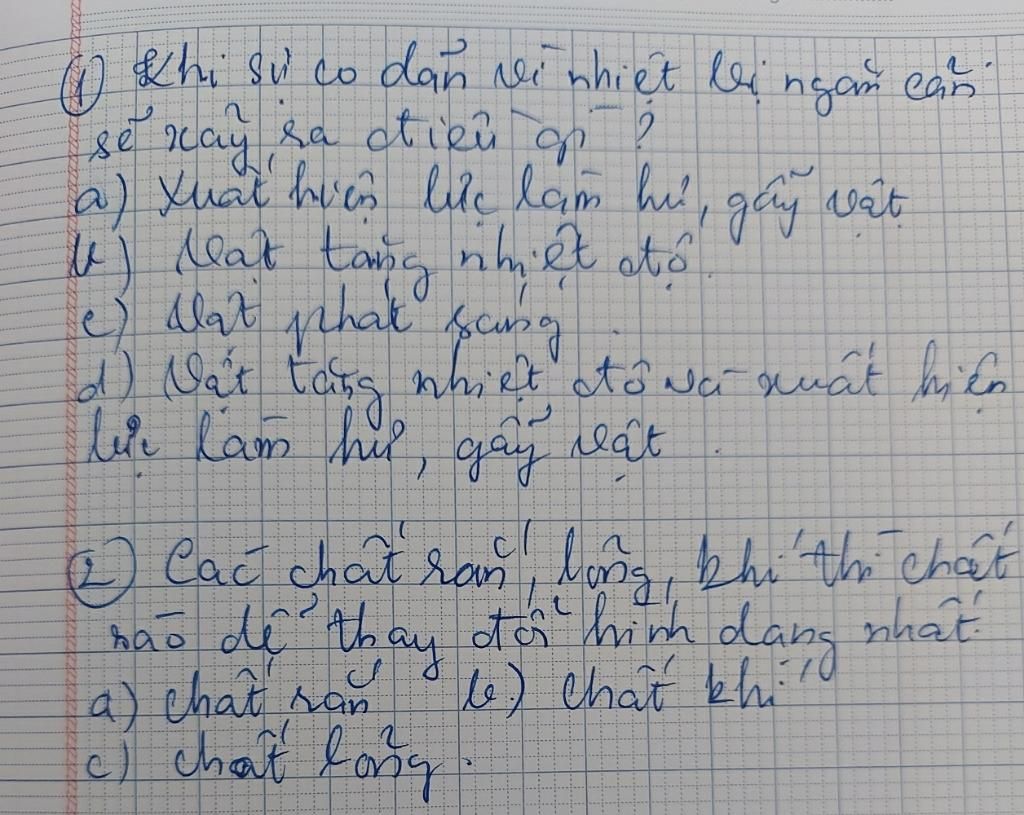 ① Khi sự co dãn vì nhiệt bị ngăn cản
sẽ xảy ra điều gì ?
a) Xuất hiện lực làm hư, gãy vật
b) Vật tăng nhiệt độ.
c) Vật phát sáng.
d) Vật tăng nhiệt độ và xuất hiện
lực làm hư, gãy vật.
② Các chất rắn, lỏng, khí thì chất
nào dễ thay đổi hình dạng nhất.
a) chất rắn b) chất khí
c) chất lỏng.